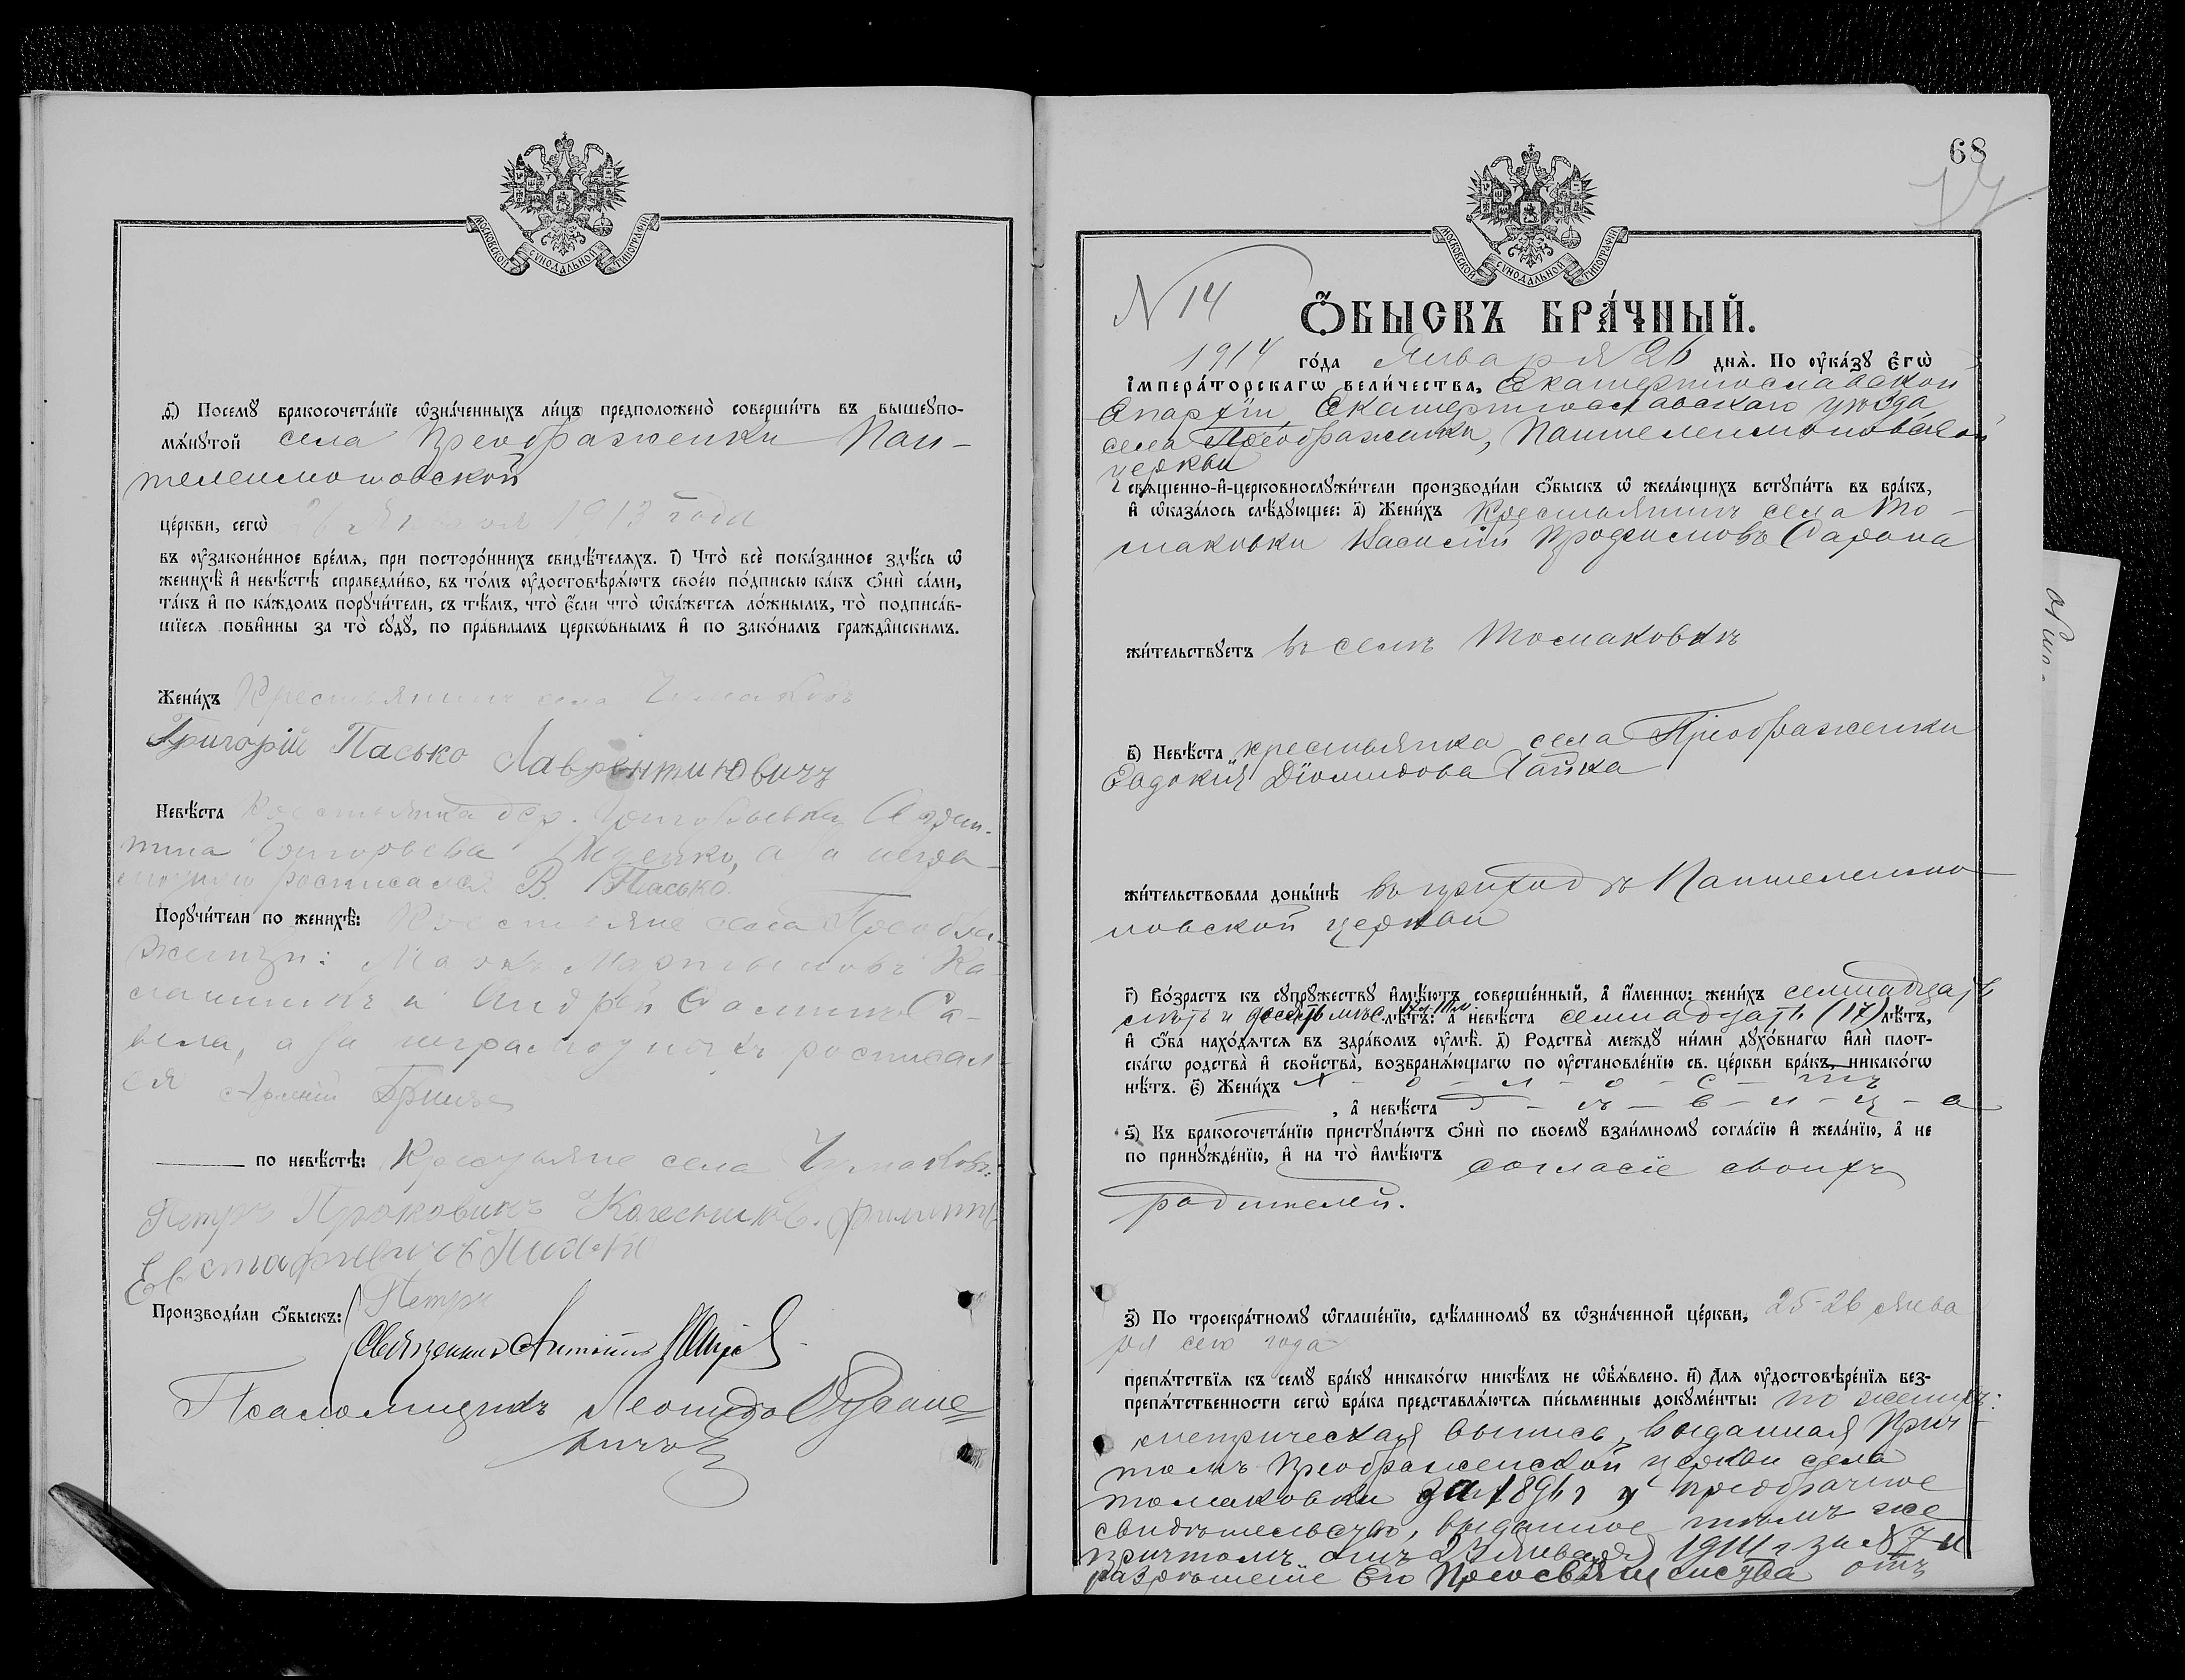 МОСКОВСКОЙ СѴНОДАЛЬНОЙ ТИПОГРАФІИ
ѳ҃) Посемꙋ бракосочета́нїе ѡ҆зна́ченныхъ ли́цъ предположено̀ соверши́ть въ вышеꙋпо-
мѧ́нꙋтой села Преображенки Пан-
телеимоновской
це́ркви, сегѡ̀ 26 Января 1913 года
въ оу҆законе́нное вре́мѧ, при посторо́ннихъ свидѣ́телѧхъ. і҃) Что̀ всѐ пока́занное здѣ́сь ѡ҆
женихѣ̀ и҆ невѣ́стѣ справедли́во, въ то́мъ оу҆достовѣрѧ́ютъ свое́ю по́дписью ка́къ ѻ҆нѝ са́ми,
та́къ и҆ по ка́ждомъ порꙋчи́тели, съ тѣ́мъ, что̀ є҆́сли что̀ ѡ҆ка́жетсѧ ло́жнымъ, то̀ подписа́в-
шїесѧ пови́нны за то̀ сꙋдꙋ̀, по пра́виламъ церко́внымъ и҆ по зако́намъ гражда́нскимъ.
Жени́хъ Крестьянинъ села Чумаковъ
Григорій Пасько Лаврентиювичъ
Невѣ́ста Крестьянка дер. Григорьевки
Григорьева а за негра-
мотную росписался В. Пасько.
Порꙋчи́тели по женихѣ̀: Крестьяне села Преобра-
женки: Маркъ Мартыновъ Ка-
и Андрей Са-
вела, а за неграмотныхъ росписал-
ся
по невѣ́стѣ: Крестьяне села Чумаковъ:
Петръ Колесников. Филиппъ
Евстафиевичъ
Петръ
Производи́ли ѻ҆́быскъ:
Священникъ Антоній
Псаломщикъ Леонидъ
68
17
МОСКОВСКОЙ СѴНОДАЛЬНОЙ ТИПОГРАФІИ
N 14
Ѻ҆́БЫСКЪ БРА́ЧНЫЙ.
1914 го́да Января 26 днѧ̀. По оу҆ка́зꙋ є҆гѡ̀
і҆мпера́торскагѡ вели́чества, Екатеринославской
Епархіи Екатеринославскаго уѣзда
села Преображенки, Пантелеимоновской
церкви
свѧще́нно-и҆-церковнослꙋжи́тели производи́ли ѻ҆́быскъ ѡ҆ жела́ющихъ встꙋпи́ть въ бра́къ,
и҆ ѡ҆каза́лось слѣ́дꙋющее: а҃) Жени́хъ Крестьянинъ села То-
маковки Василій Продгимовъ Сарана
жи́тельствꙋетъ въ селѣ Томаковкѣ
в҃) Невѣ́ста крестьянка села Преображенки
Евдокія Діомидова Гайка
жи́тельствовала доны́нѣ въ приходѣ Пантелеимо-
новской церкви
г҃) Во́зрастъ къ сꙋпрꙋ́жествꙋ и҆мѣ́ютъ соверше́нный, а҆ и҆́меннѡ: жени́хъ семнадцать
лѣтъ и десять мѣс. 17 л 10 м лѣ́тъ: а҆ невѣ́ста семнадцать (17) лѣ́тъ,
и҆ ѻ҆́ба нахо́дѧтсѧ въ здра́вомъ оу҆мѣ̀. д҃) Родства̀ междꙋ̀ ни́ми дꙋхо́внагѡ и҆лѝ плот-
ска́гѡ родства̀ и҆ свойства̀, возбранѧ́ющагѡ по оу҆становле́нїю св. це́ркви бра́къ, никако́гѡ
нѣ́тъ. є҃) Жени́хъ х – о – л – о – с – тъ
, а҆ невѣ́ста д – ѣ – в – и – ц – а
ѕ҃) Къ бракосочета́нїю пристꙋпа́ютъ ѻ҆нѝ по своемꙋ̀ взаи́мномꙋ согла́сїю и҆ жела́нїю, а҆ не
по принꙋжде́нїю, и҆ на то̀ и҆мѣ́ютъ согласіе своихъ
родителей.
з҃) По троекра́тномꙋ ѡ҆глаше́нїю, сдѣ́ланномꙋ въ ѡ҆зна́ченной це́ркви, 25-26 янва
ря сего года
препѧ́тствїѧ къ семꙋ̀ бра́кꙋ никако́гѡ никѣ́мъ не ѡ҆бъѧ́влено. и҃) Длѧ оу҆достовѣре́нїѧ без-
препѧ́тственности сегѡ̀ бра́ка представлѧ́ютсѧ пи́сьменные докꙋме́нты: по женихѣ:
метрическая выпись, выданная прич
томъ Преображенской церкви села
Томаковки за 1896 г и предбрачное
свидѣтельство, выданное тѣмъ же
причтомъ отъ 23 января 1914 г за № 7 и
разрѣшеніе Его Преосвященства отъ